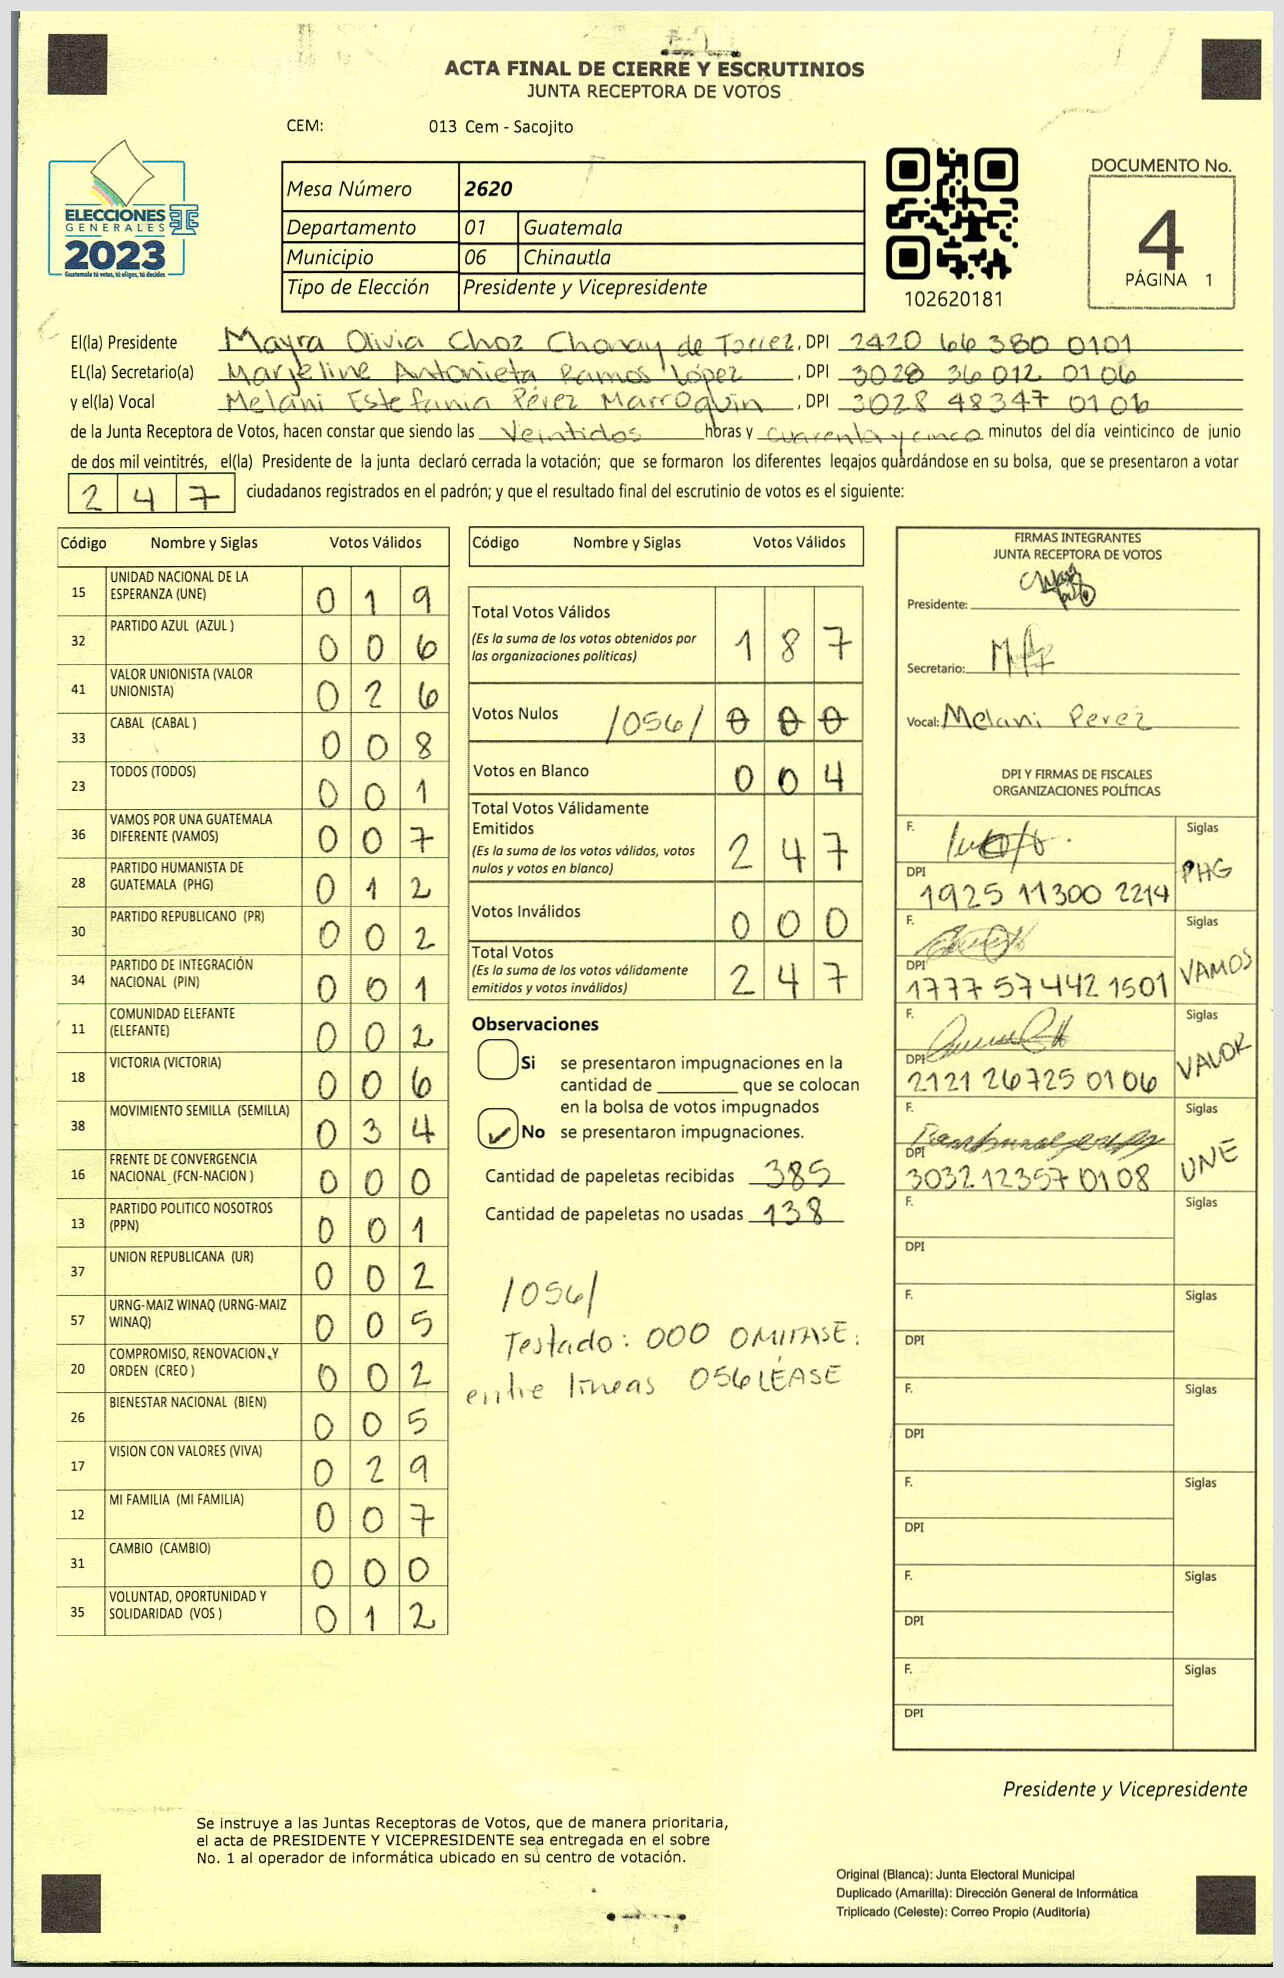 ACTA FINAL DE CIERRE Y ESCRUTINIOS
JUNTA RECEPTORA DE VOTOS
CEM: 013 Cem - Sacojito
ELECCIONES
GENERALES
2023
Guatemala tú votas, tú eliges, tú decides
Mesa Número 2620
Departamento 01 Guatemala
Municipio 06 Chinautla
Tipo de Elección Presidente y Vicepresidente
102620181
DOCUMENTO No.
4
PÁGINA 1
El(la) Presidente Mayra Olivia Choz Chonay de Torrez, DPI 2420 66380 0101
EL(la) Secretario(a) Marjeline Antonieta Ramos López, DPI 3028 36012 0106
y el(la) Vocal Melani Estefania Pérez Marroquin, DPI 3028 48347 0106
de la Junta Receptora de Votos, hacen constar que siendo las Veintidos horas y cuarenta y cinco minutos del día veinticinco de junio
de dos mil veintitrés, el(la) Presidente de la junta declaró cerrada la votación; que se formaron los diferentes legajos guardándose en su bolsa, que se presentaron a votar
2 4 7 ciudadanos registrados en el padrón; y que el resultado final del escrutinio de votos es el siguiente:
Código Nombre y Siglas Votos Válidos
15 UNIDAD NACIONAL DE LA
ESPERANZA (UNE) 0 1 9
32 PARTIDO AZUL (AZUL ) 0 0 6
41 VALOR UNIONISTA (VALOR
UNIONISTA) 0 2 6
33 CABAL (CABAL ) 0 0 8
23 TODOS (TODOS) 0 0 1
36 VAMOS POR UNA GUATEMALA
DIFERENTE (VAMOS) 0 0 7
28 PARTIDO HUMANISTA DE
GUATEMALA (PHG) 0 1 2
30 PARTIDO REPUBLICANO (PR) 0 0 2
34 PARTIDO DE INTEGRACIÓN
NACIONAL (PIN) 0 0 1
11 COMUNIDAD ELEFANTE
(ELEFANTE) 0 0 2
18 VICTORIA (VICTORIA) 0 0 6
38 MOVIMIENTO SEMILLA (SEMILLA) 0 3 4
16 FRENTE DE CONVERGENCIA
NACIONAL (FCN-NACION ) 0 0 0
13 PARTIDO POLITICO NOSOTROS
(PPN) 0 0 1
37 UNION REPUBLICANA (UR) 0 0 2
57 URNG-MAIZ WINAQ (URNG-MAIZ
WINAQ) 0 0 5
20 COMPROMISO, RENOVACION Y
ORDEN (CREO ) 0 0 2
26 BIENESTAR NACIONAL (BIEN) 0 0 5
17 VISION CON VALORES (VIVA) 0 2 9
12 MI FAMILIA (MI FAMILIA) 0 0 7
31 CAMBIO (CAMBIO) 0 0 0
35 VOLUNTAD, OPORTUNIDAD Y
SOLIDARIDAD (VOS ) 0 1 2
Código Nombre y Siglas Votos Válidos
Total Votos Válidos
(Es la suma de los votos obtenidos por
las organizaciones políticas) 1 8 7
Votos Nulos /056/ 0 0 0
Votos en Blanco 0 0 4
Total Votos Válidamente
Emitidos
(Es la suma de los votos válidos, votos
nulos y votos en blanco) 2 4 7
Votos Inválidos 0 0 0
Total Votos
(Es la suma de los votos válidamente
emitidos y votos inválidos) 2 4 7
Observaciones
Si se presentaron impugnaciones en la
cantidad de ________ que se colocan
en la bolsa de votos impugnados
No se presentaron impugnaciones.
Cantidad de papeletas recibidas 385
Cantidad de papeletas no usadas 138
/056/
Testado: 000 OMITASE.
entre líneas 056 LÉASE
FIRMAS INTEGRANTES
JUNTA RECEPTORA DE VOTOS
Presidente:
Secretario:
Vocal: Melani Perez
DPI Y FIRMAS DE FISCALES
ORGANIZACIONES POLÍTICAS
F. Siglas
PHG
DPI 1925 11300 2214
F. Siglas
VAMOS
DPI 1777 57442 1501
F. Siglas
VALOR
DPI 2121 26725 0106
F. Siglas
UNE
DPI 3032 12357 0108
F. Siglas
DPI
F. Siglas
DPI
F. Siglas
DPI
F. Siglas
DPI
F. Siglas
DPI
F. Siglas
DPI
Presidente y Vicepresidente
Se instruye a las Juntas Receptoras de Votos, que de manera prioritaria,
el acta de PRESIDENTE Y VICEPRESIDENTE sea entregada en el sobre
No. 1 al operador de informática ubicado en su centro de votación.
Original (Blanca): Junta Electoral Municipal
Duplicado (Amarilla): Dirección General de Informática
Triplicado (Celeste): Correo Propio (Auditoría)